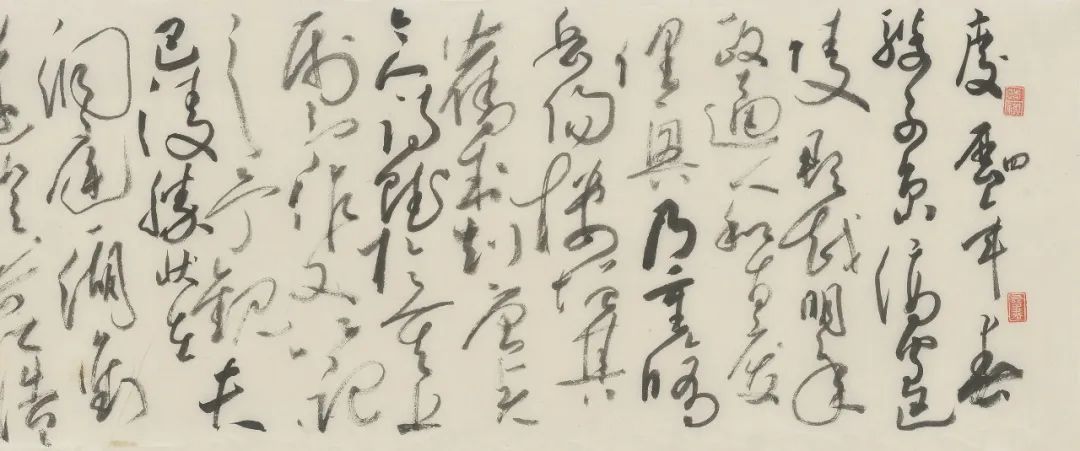 慶曆四年春
滕子京謫守巴
陵郡越明年
政通人和百廢
俱興乃重修
岳陽樓增其
舊制刻唐賢
今人詩賦於其上
屬予作文以記
之予觀夫
巴陵勝狀在
洞庭一湖銜